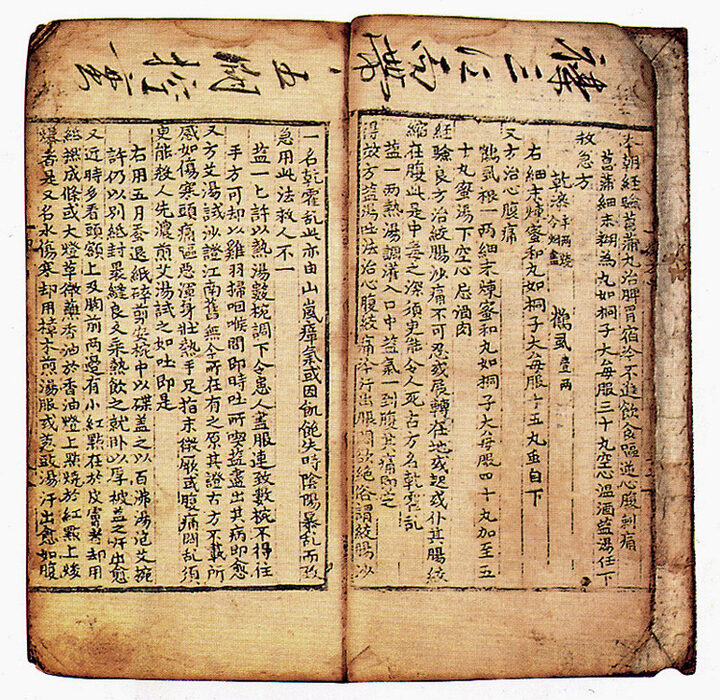 本朝経驗菖蒲丸治脾胃宿冷不進飲食嘔逆心腹刺痛
菖蒲細末糊為丸如桐子大每服三十丸空心温酒盐湯任下
救急方
乾漆半兩燒令烟盡 鶴虱壹兩
右細末煉蜜和丸如桐子大每服十五丸虫自下
又方治心腹痛
鶴虱根一兩細末煉蜜和丸如桐子大每服四十丸加至五
十丸蜜湯下空心忌酒肉
經驗良方治絞腸沙痛不可忍或展轉在地或起或仆其腸絞
縮在腹此是中毒之深須臾能令人死古方名乾霍乱
盐一兩熱湯調灌入口中盐氣一到腹其痛即定
得效方盐湯吐法治心腹絞痛冷汗出脹悶欲絶俗謂絞腸沙
一名乾霍乱此亦由山嵐瘴氣或因飢飽失時陰陽暴乱而致
急用此法救人不一
盐一匕許以熱湯數椀調下令患人盖服連致數椀不得住
手方可却以雞羽掃咽喉間即時吐所喫盐盡出其病即愈
又方艾湯試沙證江南舊無今所在有之原其證古方不載所
感如傷寒頭痛嘔惡渾身壯熱手足指末微厥或腹痛悶乱須
臾能殺人先濃煎艾湯試之如吐即是
右用五月蚕退紙碎剪安椀中以碟盖之以百沸湯泡艾椀
許仍以別紙封裹縫良久乘熱飲之就卧以厚被盖之汗出愈
又近時多看頭額上及胸前兩邊有小紅點在於皮膚者却用
紙撚成條或大燈草微蘸香油於香油燈上點燒於紅點上焌
爆者是又名水傷寒却用樟木煎湯服或葱豉湯汗出愈如腹